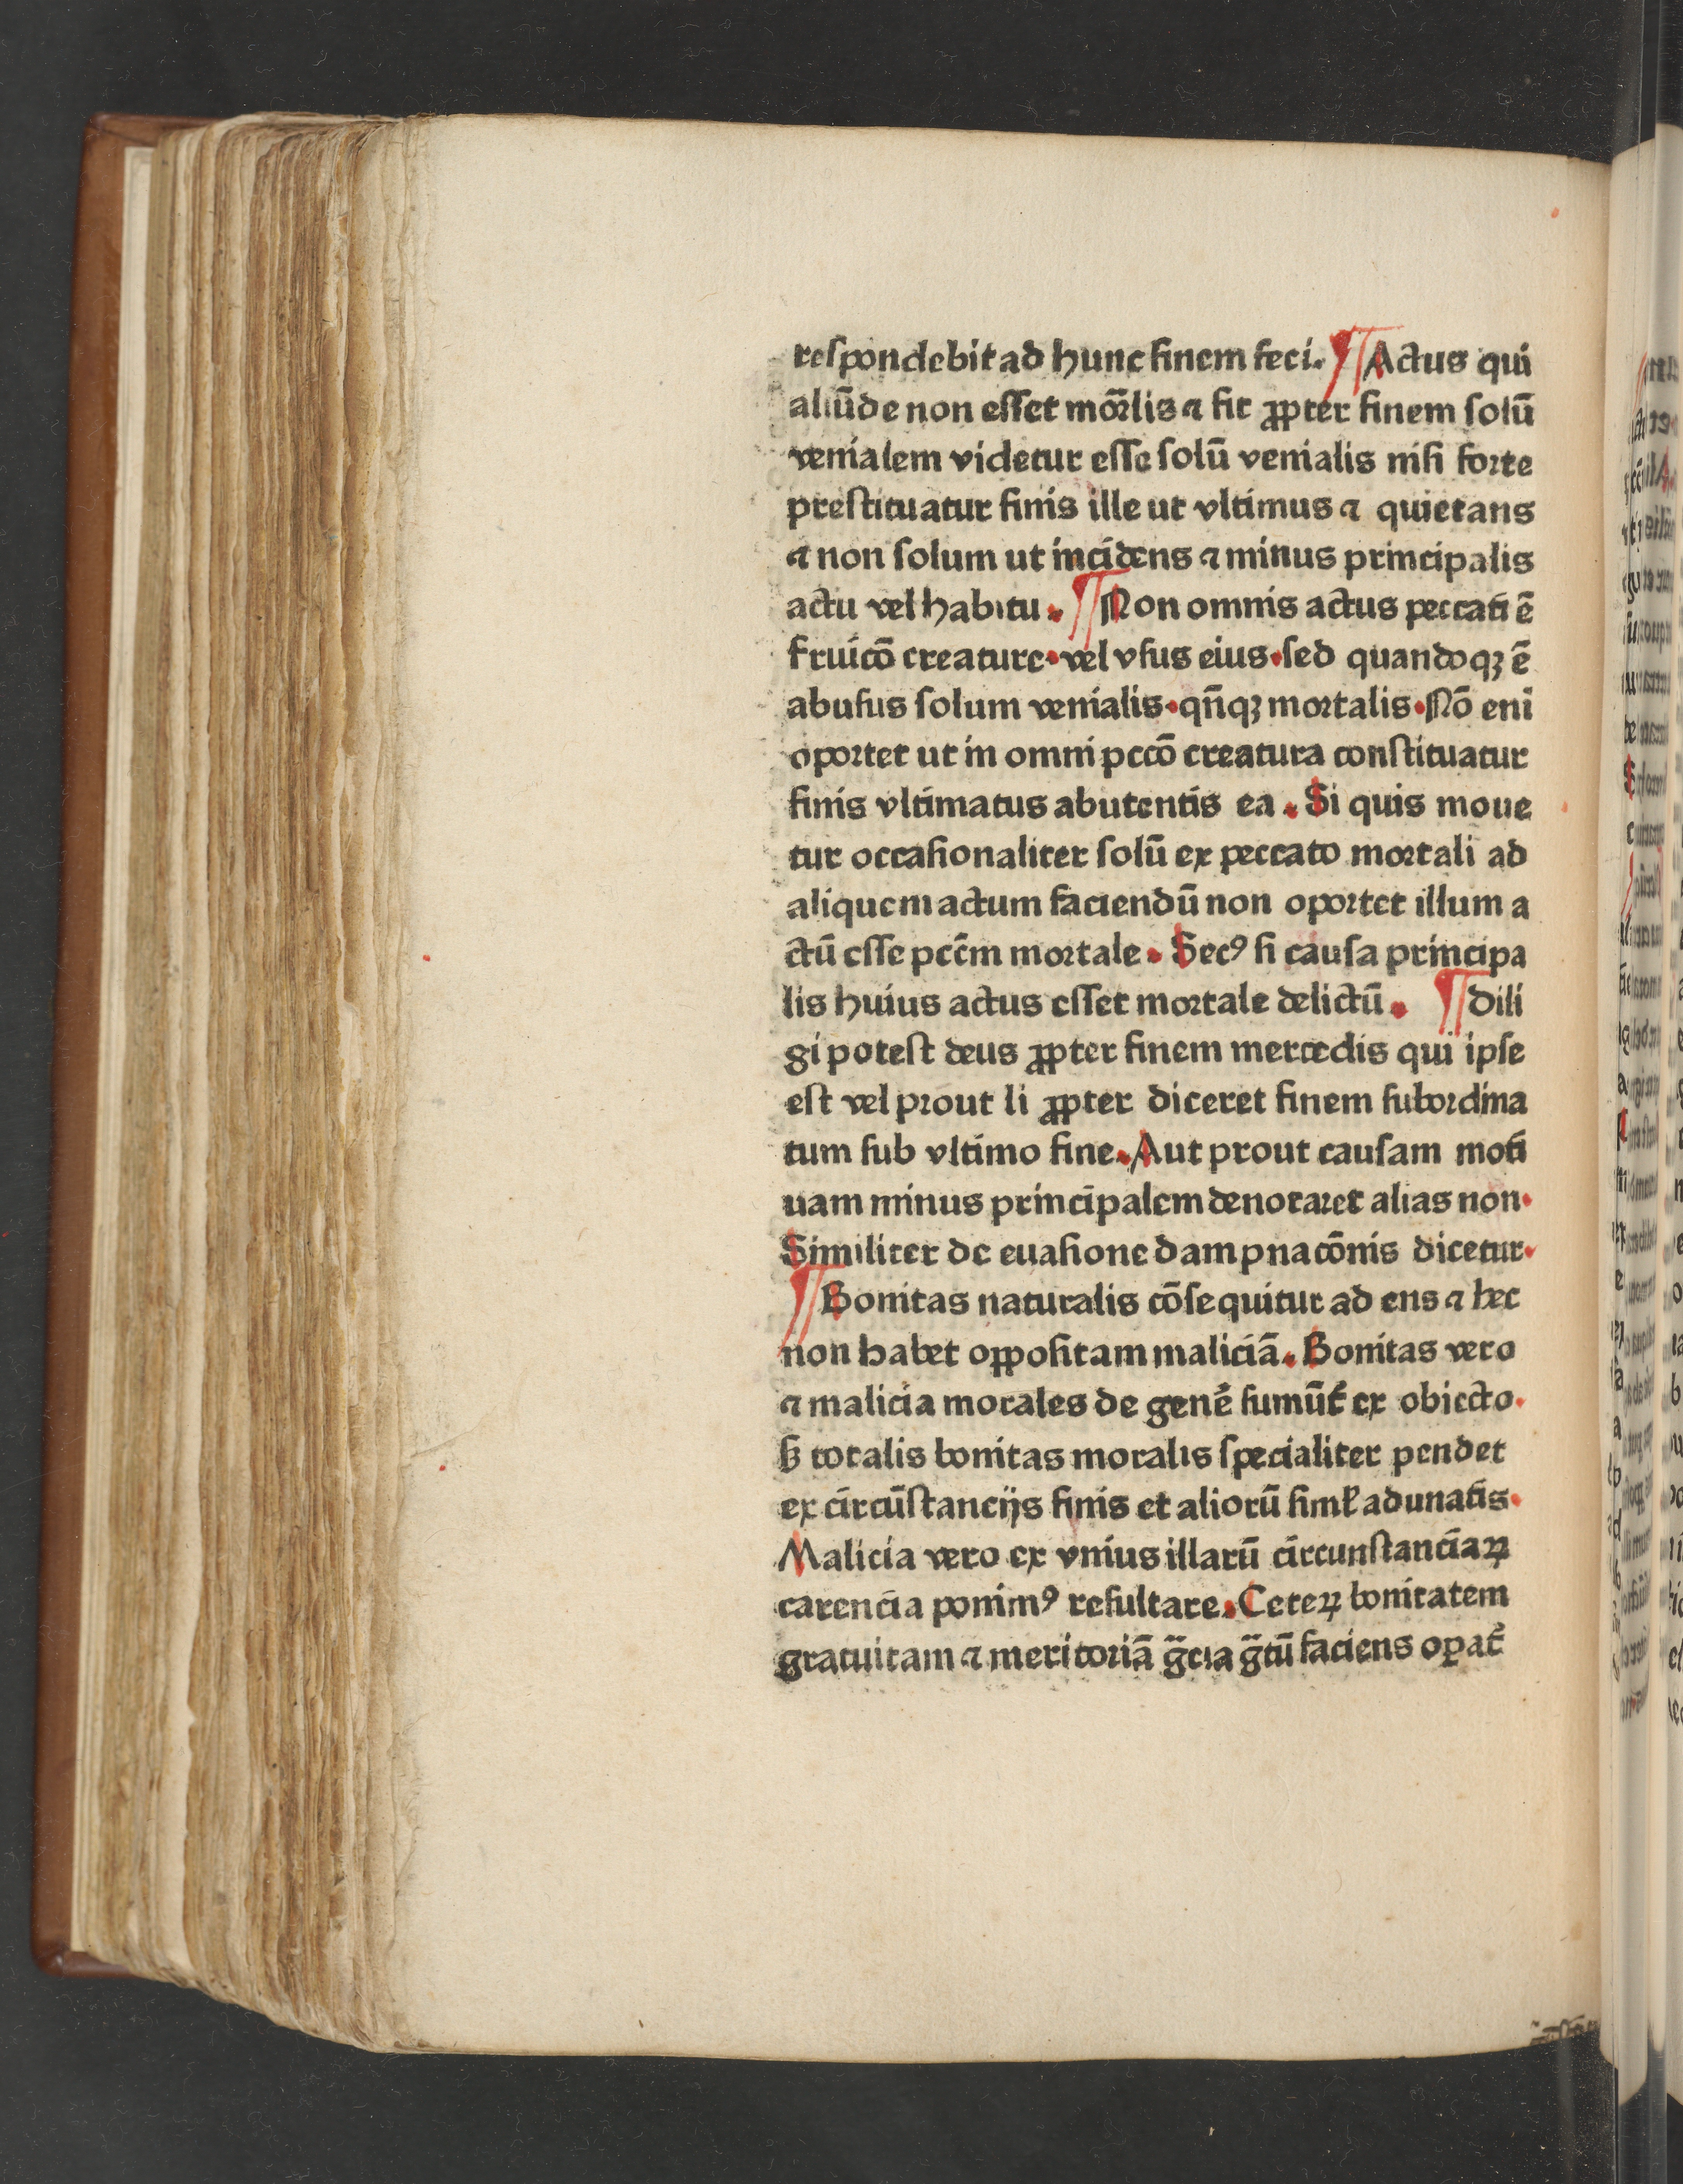 respondebit ad hunc finem feci. ¶ Actus qui
aliūde non esset mōrlis ⁊ fit ꝓpter finem solū
venialem videtur esse solū venialis nisi forte
prestituatur finis ille ut vltimus ⁊ quietans
⁊ non solum ut incidens ⁊ minus principalis
actu vel habitu. ¶ Non omnis actus peccati ē
fruicō creature. vel vsus eius. sed quandoqꝫ ē
abusus solum venialis. qn̄qꝫ mortalis. Nō eni
oportet ut in omni pccō creatura constituatur
finis vltimatus abutentis ea. Si quis moue
tur occasionaliter solū ex peccato mortali ad
aliquem actum faciendū non oportet illum a
ctū esse pcc̄m mortale. Secꝰ si causa principa
lis huius actus esset mortale delictū. ¶ Dili
gi potest deus ꝓpter finem mercedis qui ipse
est vel prout li ꝓpter diceret finem subordina
tum sub vltimo fine. Aut prout causam moti
uam minus principalem denotaret alias non.
Similiter de euasione dampnacōnis dicetur.
¶ Bonitas naturalis cōsequitur ad ens ⁊ hec
non habet oppositam maliciā. Bonitas vero
⁊ malicia morales de genē sumūt̄ ex obiecto.
ꝫ totalis bonitas moralis specialiter pendet
ex circūstancijs finis et aliorū simł adunatis.
Malicia vero ex vnius illarū circunstanciaꝝ
carencia ponimꝰ resultare. Ceteꝝ bonitatem
gratuitam ⁊ meritoriā gr̄cia gr̄tū faciens oꝑat̄